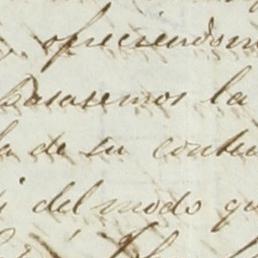 ofreciendono
pasasemos la
la de su conte
i del modo qu